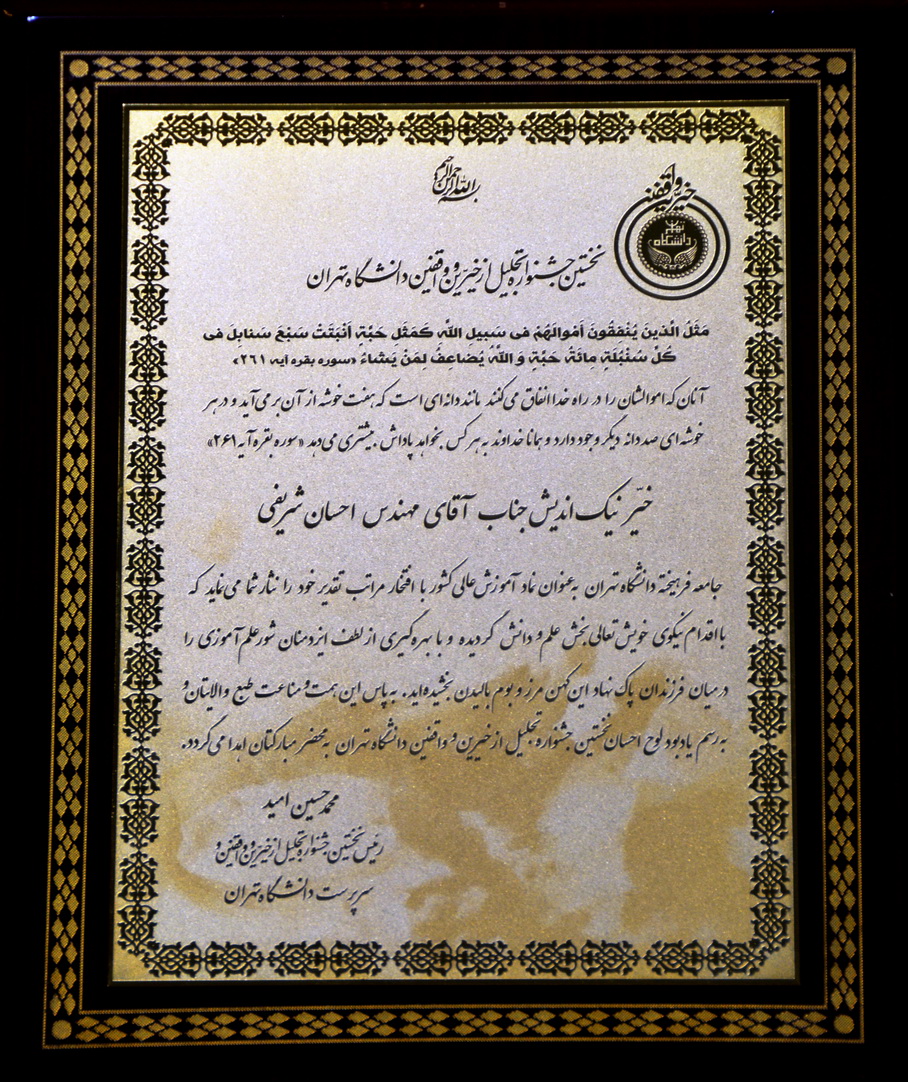 بسم الله الرحمن الرحیم
خیرین و واقفین
دانشگاه تهران
نخستین جشنواره تجلیل از خیرین و واقفین دانشگاه تهران
مَثَلُ الَّذینَ یُنْفِقُونَ أَمْوالَهُمْ فی سَبیلِ اللَّهِ کَمَثَلِ حَبَّةٍ أَنْبَتَتْ سَبْعَ سَنابِلَ فی
کُلِّ سُنْبُلَةٍ مِائَةُ حَبَّةٍ وَ اللَّهُ یُضاعِفُ لِمَنْ یَشاءُ «سوره بقره آیه ۲۶۱»
آنان که اموالشان را در راه خدا انفاق می‌کنند مانند دانه‌ای است که هفت خوشه از آن بر می‌آید و در هر
خوشه‌ای صد دانه دیگر وجود دارد و همانا خداوند به هر کس بخواهد پاداش بیشتری می‌دهد «سوره بقره آیه ۲۶۱»
خیّر نیک اندیش جناب آقای مهندس احسان شریفی
جامعه فرهیخته دانشگاه تهران به‌عنوان نماد آموزش عالی کشور با افتخار مراتب تقدیر خود را نثار شما می‌نماید که
با اقدام نیکوی خویش تعالی بخش علم و دانش گردیده و با بهره‌گیری از لطف ایزدمنان شور علم آموزی را
در میان فرزندان پاک نهاد این کهن مرز و بوم بالیدن بخشیده‌اید. به پاس این همت و مناعت طبع والایتان و
به رسم یادبود لوح احسان نخستین جشنواره تجلیل از خیرین و واقفین دانشگاه تهران به محضر مبارکتان اهدا می‌گردد.
محمد حسین امید
رئیس نخستین جشنواره تجلیل از خیرین و واقفین و
سرپرست دانشگاه تهران